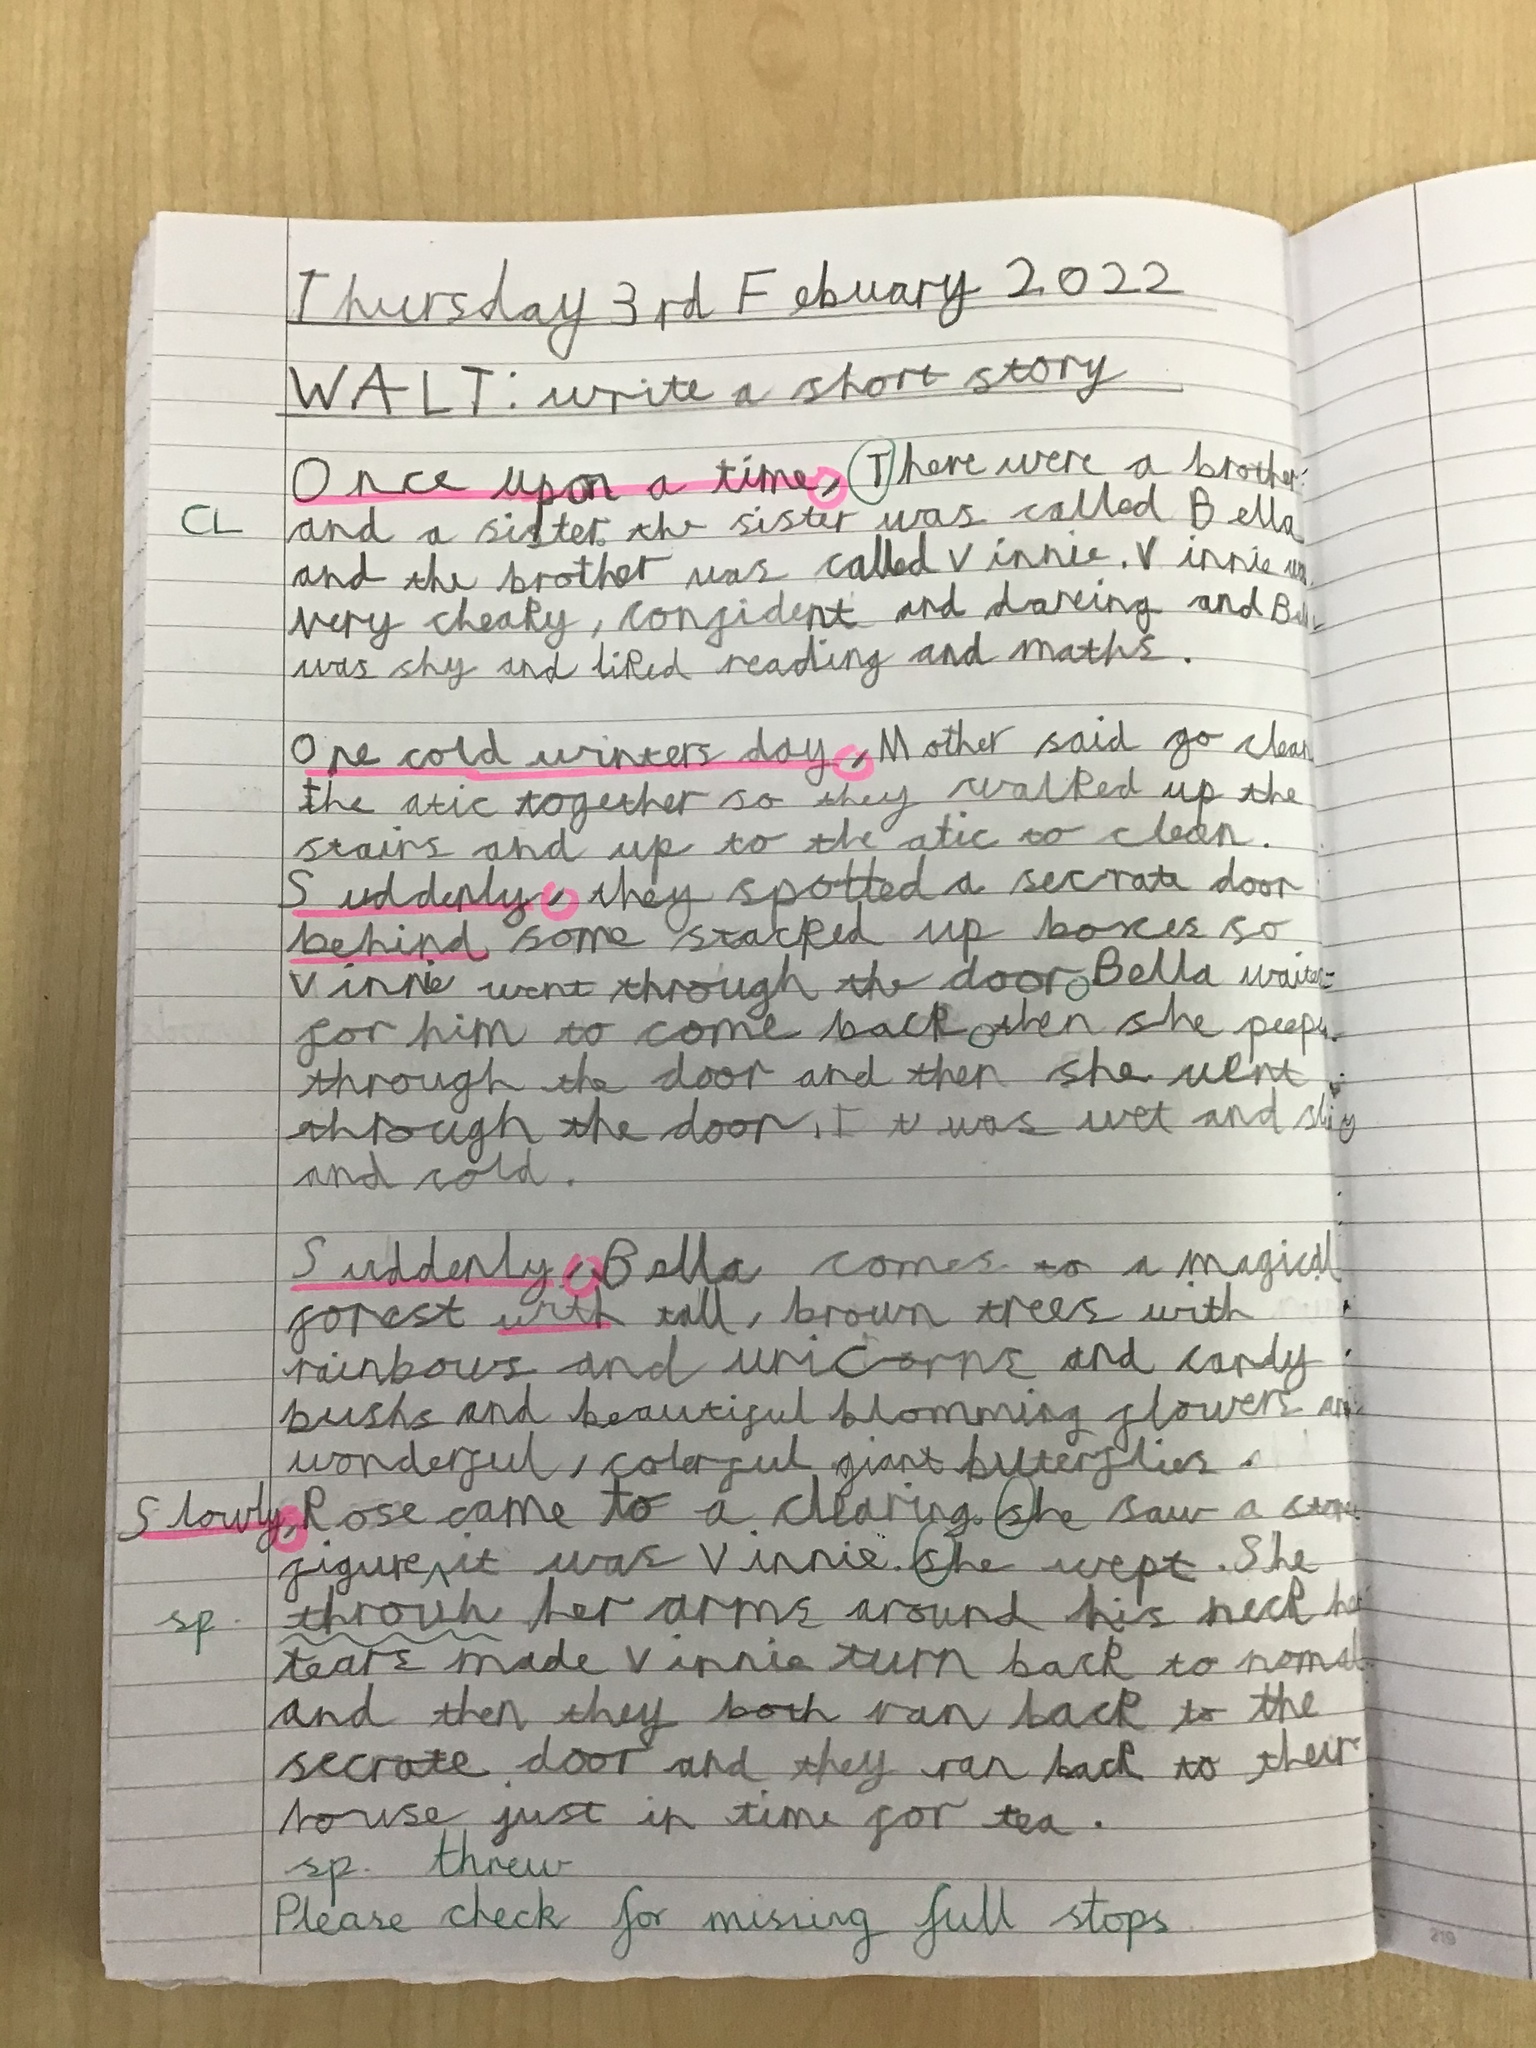 Thursday 3rd Febuary 2022
WALT: write a short story
Once upon a time, There were a brother
CL and a sister. the sister was called Bella
and the brother was called Vinnie. Vinnie
very cheaky, confident and dareing and
was shy and liked reading and maths.
One cold winters day, Mother said go clean
the atic together so they walked up the
stairs and up to the atic to clean.
Suddenly, they spotted a secrate door
behind some stacked up boxes so
Vinnie went through the door. Bella
for him to come back. then she
through the door and then she went
through the door. It was wet and
and cold.
Suddenly, Bella comes to a magical
forest with tall, brown trees with
rainbows and unicorns and candy
bushs and beautiful blomming flowers
wonderful, colerful giant buterflies.
Slowly, Rose came to a clearing. she saw a
figure it was Vinnie. she wept. She
sp. throuh her arms around his neck
tears made Vinnie turn back to
and then they both ran back to the
secrate door and they ran back to their
house just in time for tea.
sp. threw
Please check for missing full stops
219